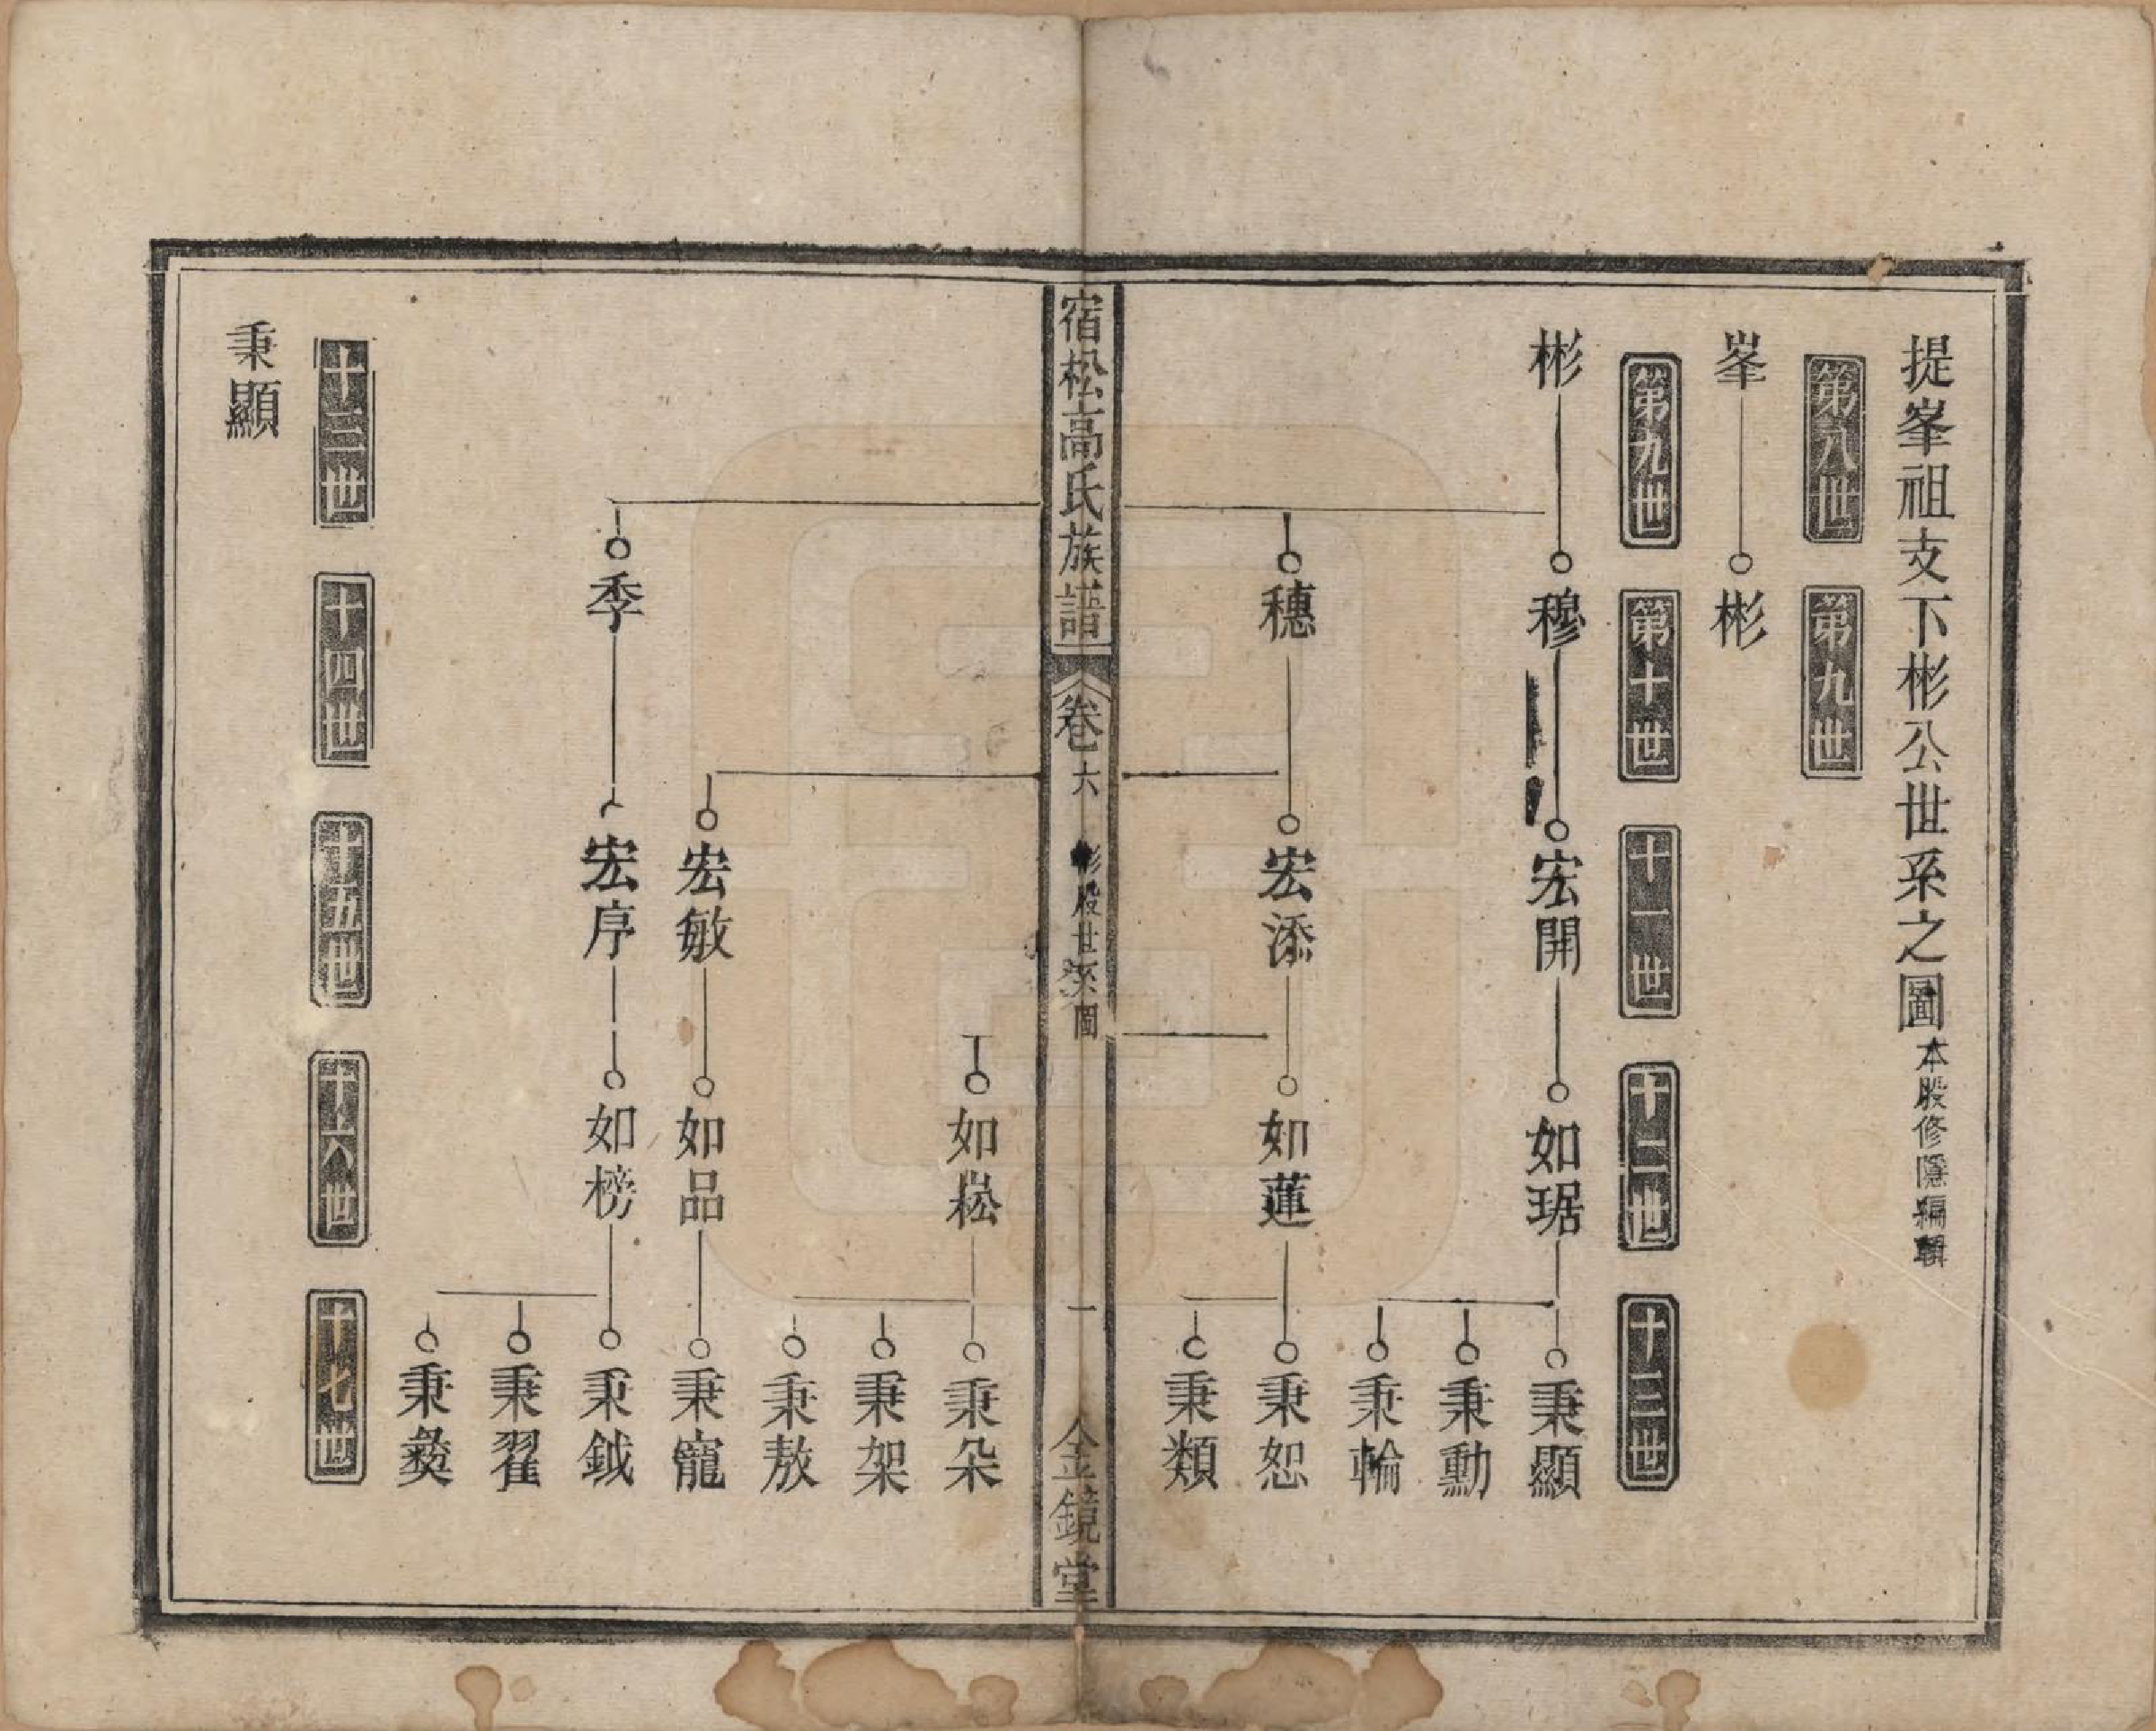 提峯祖支下彬公世系之圖 本股修隱編輯
第八世 第九世
峯 彬
第九世 第十世 十一世 十二世 十三世
彬 穆 宏開 如琚 秉顯
秉勳
秉輪
穗 宏添 如蓮 秉恕
秉類
宿松高氏族譜 卷六 彬股世系圖 一 金鏡堂
如崧 秉朵
秉架
秉敖
宏敏 如品 秉寵
季 宏序 如榜 秉鉞
秉翟
秉彝
十三世 十四世 十五世 十六世 十七世
秉顯